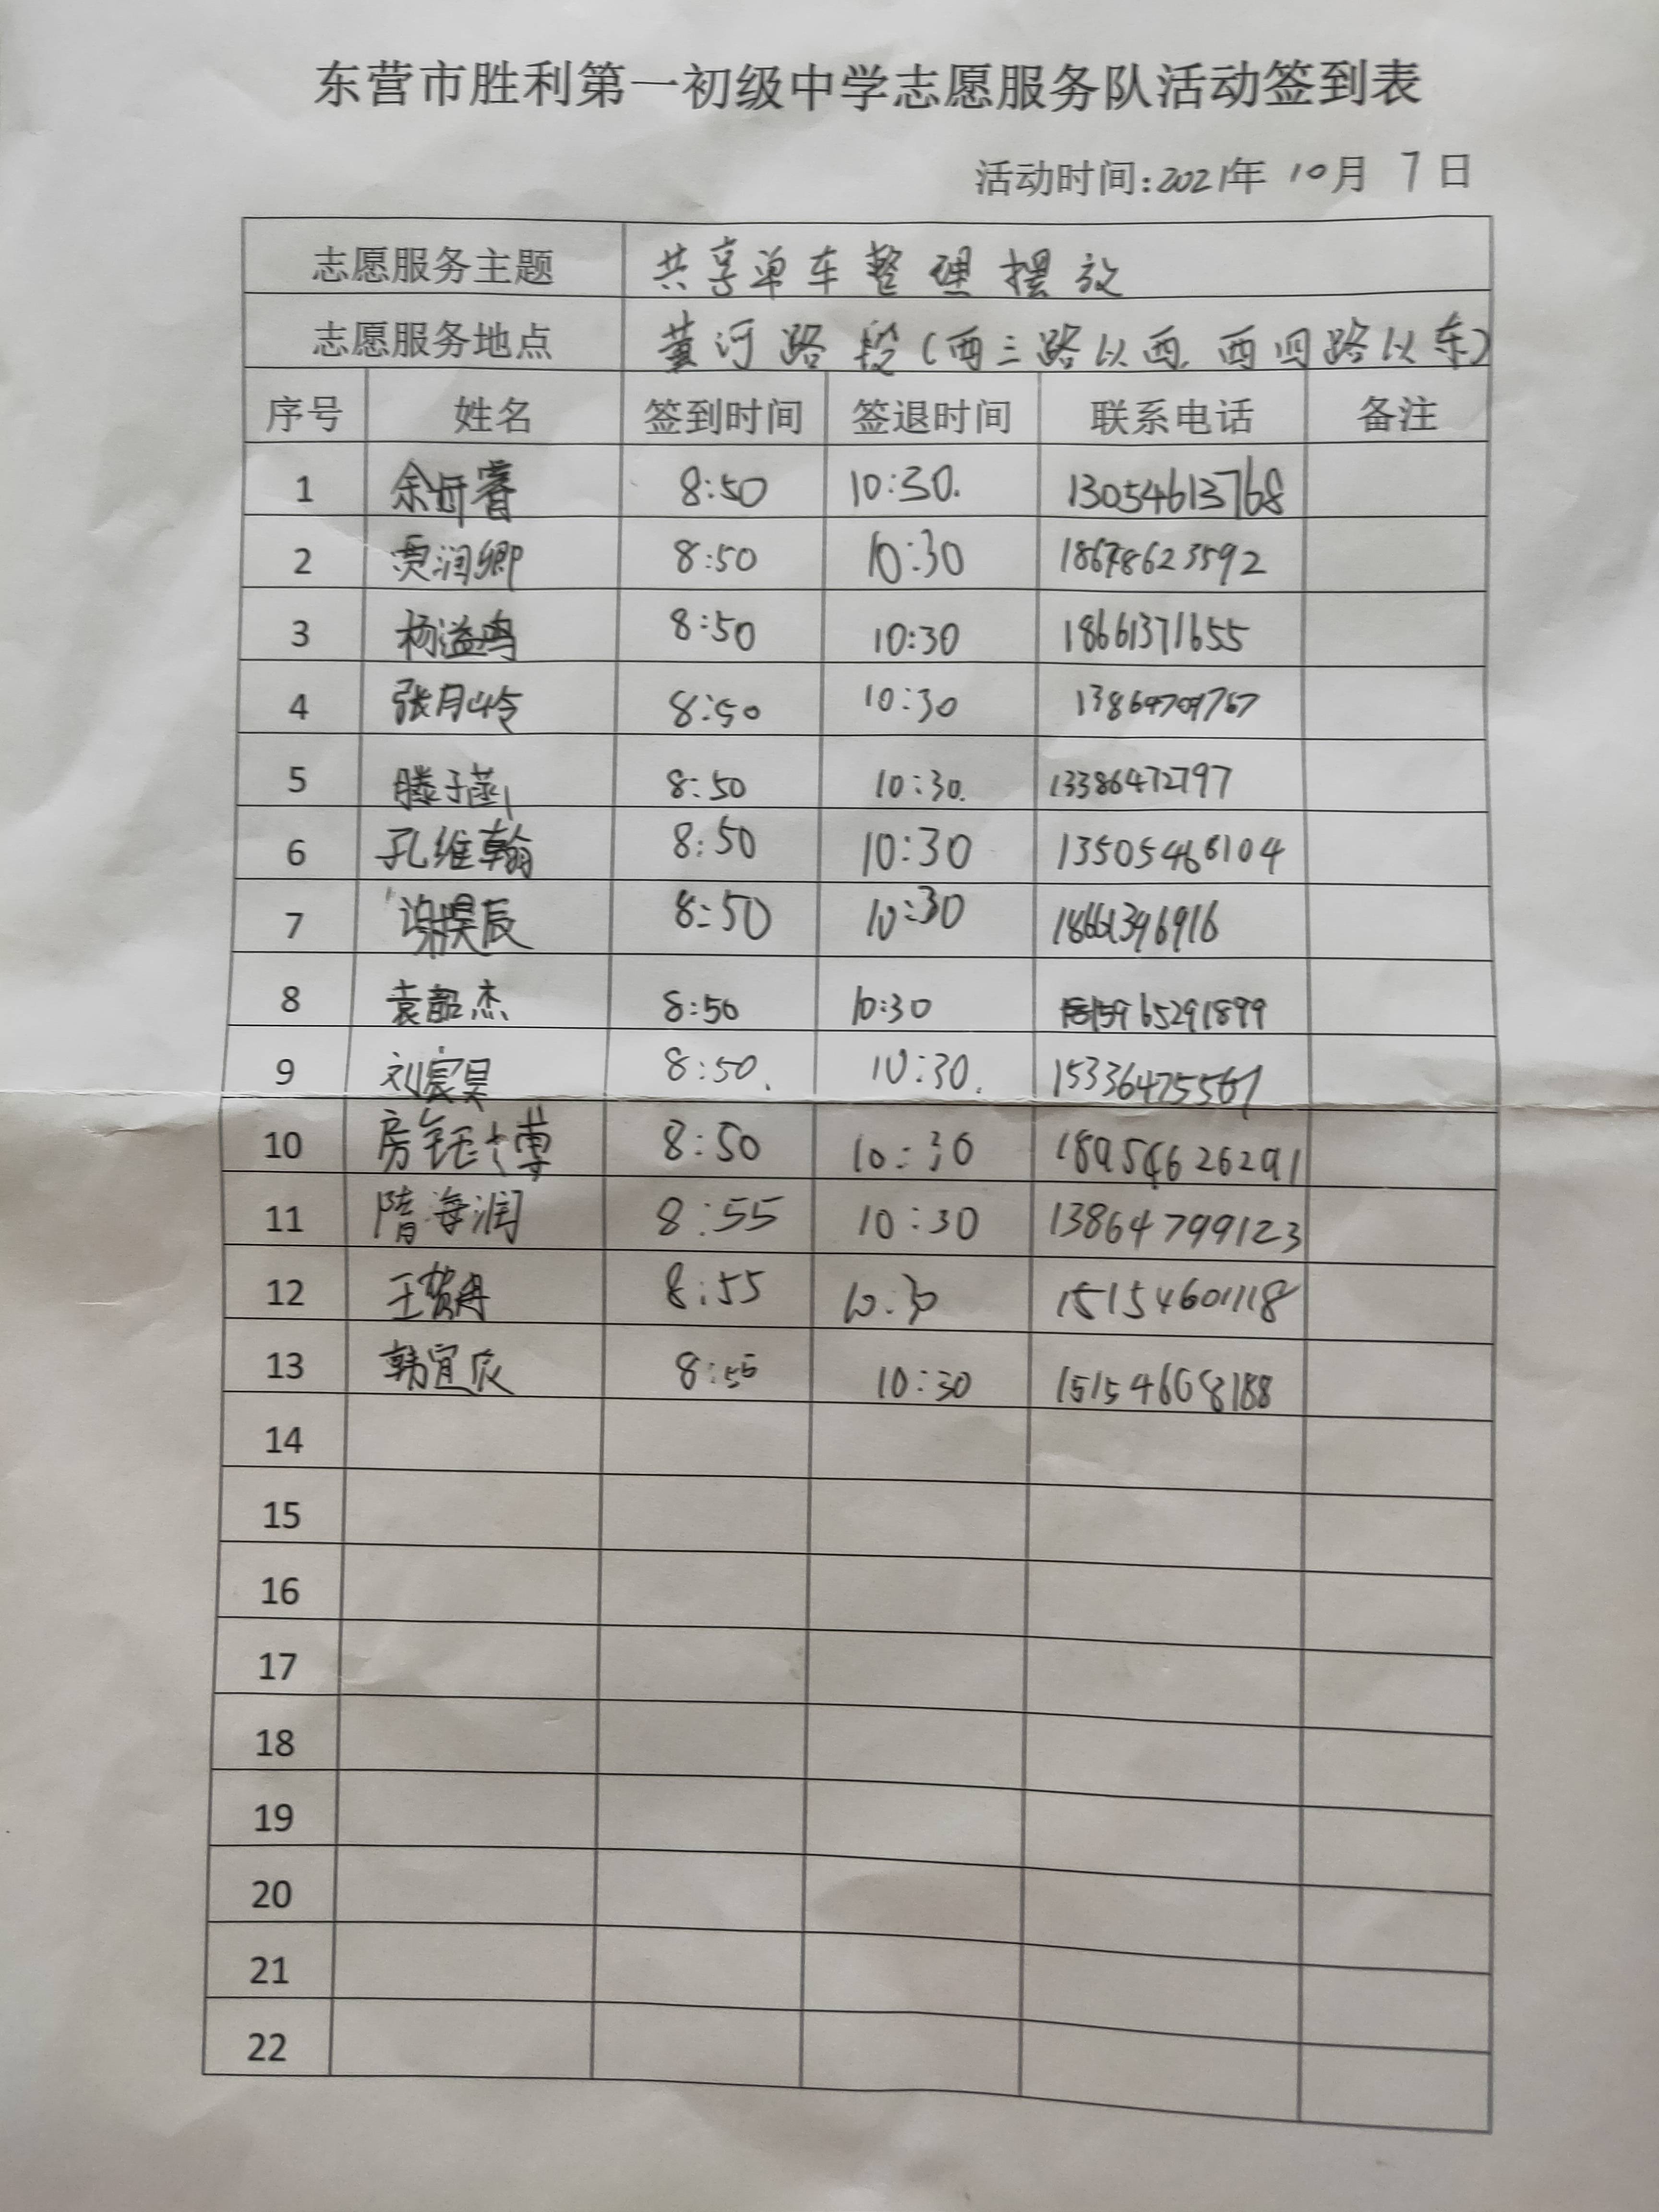 东营市胜利第一初级中学志愿服务队活动签到表
活动时间:2021年 10月 7日
志愿服务主题 共享单车整理摆放
志愿服务地点 黄河路段(西三路以西,西四路以东)
序号 姓名 签到时间 签退时间 联系电话 备注
1 8:50 10:30. 13054613768
2 贾润卿 8:50 10:30 18678623592
3 杨溢鸣 8:50 10:30 18661371655
4 张月岭 8:50 10:30
5 滕子菡 8:50 10:30. 13386472797
6 孔维翰 8:50 10:30 13505468104
7 8:50 10:30 18661396916
8 袁韶杰 8:50 10:30 15965291899
9 刘宸昊 8:50. 10:30. 15336475567
10 房钰博 8:50 10:30 18954626291
11 隋海润 8:55 10:30 13864799123
12 8:55 10:30 15154601118
13 韩宜辰 8:55 10:30 15154608188
14
15
16
17
18
19
20
21
22